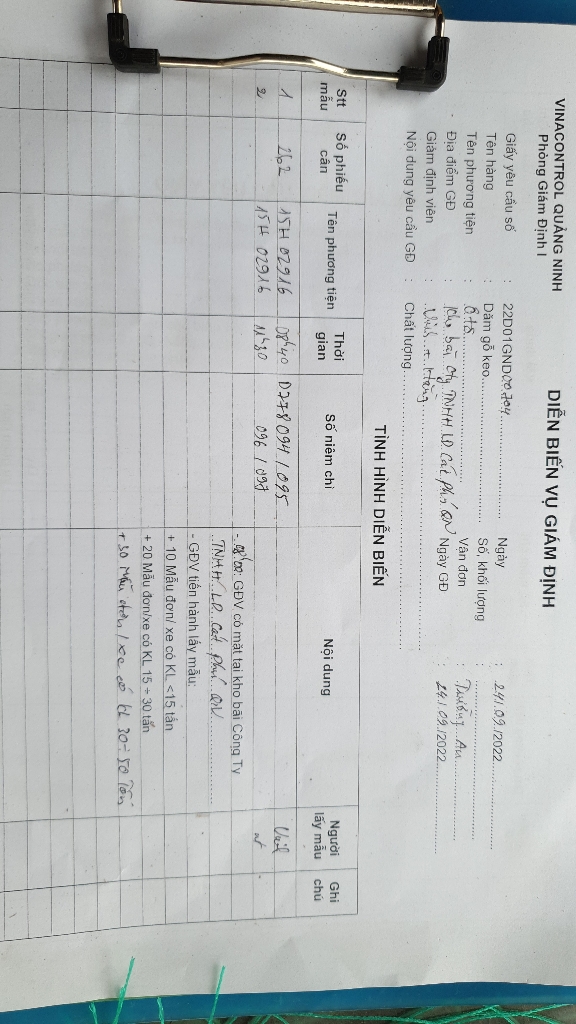 VINACONTROL QUẢNG NINH
Phòng Giám Định I
DIỄN BIẾN VỤ GIÁM ĐỊNH
Giấy yêu cầu số : 22D01GND00704 Ngày : 24/.09./2022
Tên hàng : Dăm gỗ keo Số, khối lượng :
Tên phương tiện : Ô tô Vận đơn : Trường An
Địa điểm GĐ : Kho bãi Cty TNHH LD Cát Phú QN Ngày GĐ : 24/.09./2022
Giám định viên : Vinh +
Nội dung yêu cầu GĐ : Chất lượng
TÌNH HÌNH DIỄN BIẾN
Stt mẫu Số phiếu cân Tên phương tiện Thời gian Số niêm chì Nội dung Người lấy mẫu Ghi chú
1 262 15H 02916 08h40 D278 094 / 095
2 15H 02916 11h30 096 / 097
- 08h00: GĐV có mặt tại kho bãi Công Ty
TNHH LD Cát Phú QN
- GĐV tiến hành lấy mẫu:
+ 10 Mẫu đơn/ xe có KL <15 tấn
+ 20 Mẫu đơn/xe có KL 15 ÷ 30 tấn
+ 30 Mẫu đơn / xe có KL 30 ÷ 50 Tấn